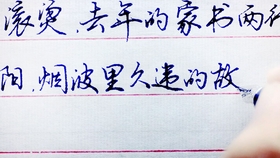 滚烫,去年的家书两行
阳,烟波里久违的故